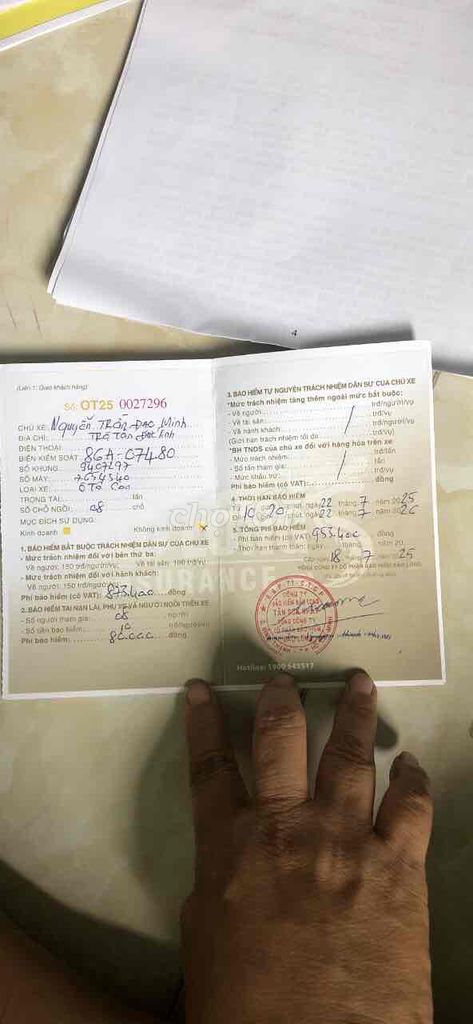 (Liên 1: Giao khách hàng)
Số: OT25 0027296
CHỦ XE: Nguyễn Trần Đạo Minh
ĐỊA CHỈ: Trà Tân Đức Linh
ĐIỆN THOẠI:
BIỂN KIỂM SOÁT: 86A-074.80
SỐ KHUNG: 9407297
SỐ MÁY: 7634540
LOẠI XE: Ô Tô Con
TRỌNG TẢI: tấn
SỐ CHỖ NGỒI: 08 chỗ
MỤC ĐÍCH SỬ DỤNG:
Kinh doanh Không kinh doanh x
1. BẢO HIỂM BẮT BUỘC TRÁCH NHIỆM DÂN SỰ CỦA CHỦ XE
- Mức trách nhiệm đối với bên thứ ba:
Về người: 150 trđ/người/vụ Về tài sản: 100 trđ/vụ
- Mức trách nhiệm đối với hành khách:
Về người: 150 trđ/người/vụ
Phí bảo hiểm (có VAT): 873.400 đồng
2. BẢO HIỂM TAI NẠN LÁI, PHỤ XE VÀ NGƯỜI NGỒI TRÊN XE
- Số người tham gia: 08
- Số tiền bảo hiểm: 10 trđ/người/vụ
Phí bảo hiểm: 80.000 đồng
3. BẢO HIỂM TỰ NGUYỆN TRÁCH NHIỆM DÂN SỰ CỦA CHỦ XE
*Mức trách nhiệm tăng thêm ngoài mức bắt buộc:
- Về người: trđ/người/vụ
- Về tài sản: trđ/vụ
- Về hành khách: trđ/người/vụ
(Giới hạn trách nhiệm tối đa trđ/vụ)
*BH TNDS của chủ xe đối với hàng hóa trên xe
- Mức trách nhiệm: trđ/tấn
- Số tấn tham gia: tấn
- Mức khấu trừ: trđ/vụ
Phí bảo hiểm (có VAT): đồng
4. THỜI HẠN BẢO HIỂM
Từ 10 giờ 20 phút, ngày 22 tháng 7 năm 2025
ngày 22 tháng 7 năm 2026
5. TỔNG PHÍ BẢO HIỂM
Phí bảo hiểm (có VAT) 953.400 đồng
Thời hạn thanh toán: ngày tháng năm 20
Cấp ngày 18 tháng 7 năm 2025
TỔNG CÔNG TY CỔ PHẦN BẢO HIỂM BẢO LONG
CÔNG TY
BẢO HIỂM BẢO LONG
TỔNG CÔNG TY
CỔ PHẦN BẢO HIỂM
Hotline: 1900 545517
URANCE